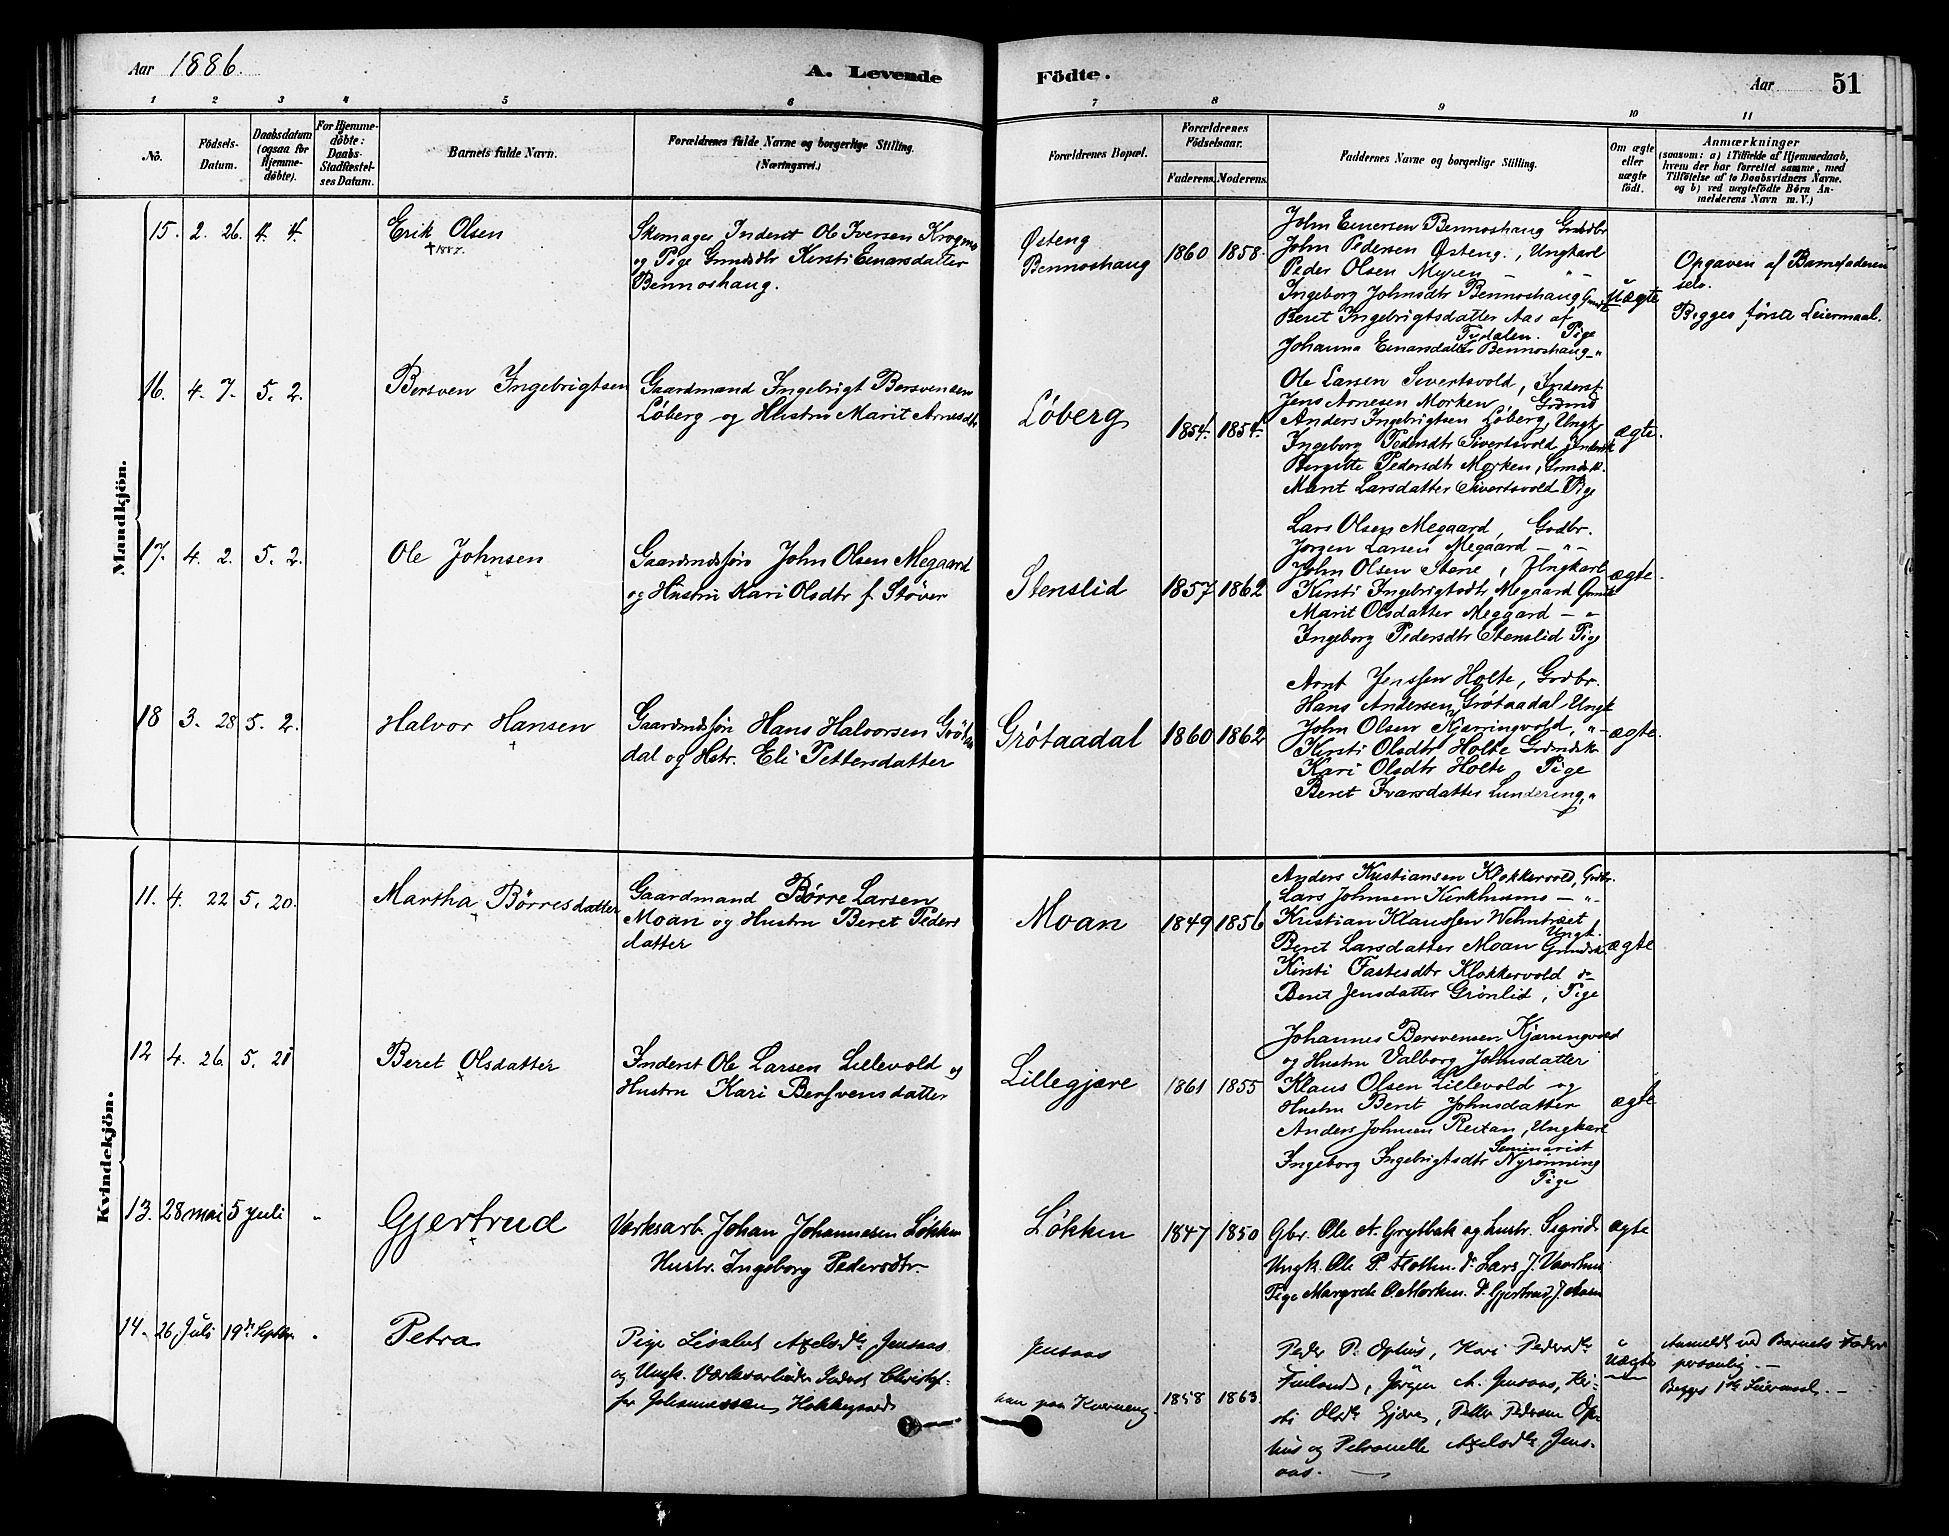 Aar 1886.
A. Levende
Födte.
Aar
51
1 2 3 4 5 6 7 8 9 10 11
No.
Födsels-
Datum.
Daabsdatum
(ogsaa for
Hjemme-
döbte).
For Hjemme-
döbte:
Daabs-
Stadfæstel-
ses Datum.
Barnets fulde Navn.
Forældrenes fulde Navne og borgerlige Stilling.
(Næringsvei.)
Forældrenes Bopæl.
Forældrenes
Födselsaar.
Faderens. Moderens.
Faddernes Navne og borgerlige Stilling.
Om ægte
eller
uægte
födt.
Anmærkninger
(saasom: a) i Tilfælde af Hjemmedaab,
hvem der har forrettet samme, med
Tilföielse af to Daabsvidners Navne.
og b) ved uægtefödte Börn An-
melderens Navn m. V.)
Mandkjön.
15. 2. 26. 4. 4.
Erik Olsen
+ 1887.
Skomager Inderst Ole Iversen
og Pige Grmdsdtr Kirsti Einarsdatter
Bennoshaug.
Østeng
Bennoshaug
1860 1858
John Einersen Bennoshaug Grdbr
John Pedersen Østeng, Ungkarl
Peder Olsen Myren — " —
Ingeborg Johnsdtr Bennoshaug,
Beret Ingebrigtsdatter Aas af
Tydalen. Pige
Johanna Einarsdatter Bennoshaug "
Uægte
Opgaven af Barnefaderen
selv.
Begges første Leiermaal.
16. 4. 7. 5. 2.
Bersven Ingebrigtsen
Gaardmand Ingebrigt Bersvensen
Løberg og Hustru Marit Arnesdtr
Løberg
1854. 1854.
Ole Larsen Sivertsvold, Inderst
Jens Arnesen Morken, Grdmd
Anders Ingebrigtsen Løberg, Ungk
Ingeborg Pedersdtr Sivertsvold
Bergitte Pedersdtr Morken,
Marit Larsdatter Sivertsvold Pige
ægte.
17. 4. 2. 5. 2.
Ole Johnsen
+
Gaardmdsføn John Olsen Megaard
og Hustru Kari Olsdtr f. Støver
Stenslid
1857 1862
Lars Olsen Megaard, Grdbr.
Jørgen Larsen Megaard — " —
John Olsen Stene, Ungkarl
Kirsti Ingebrigtsdtr Megaard
Marit Olsdatter Megaard — "
Ingeborg Pedersdtr Stenslid Pige
ægte.
18 3. 28 5. 2.
Halvor Hansen
+
Gaardmdsføn Hans Halvorsen Grötaa
dal og Hstr. Eli Pettersdatter
Grötaadal
1860 1862
Arnt Jenssen Holte, Grdbr.
Hans Andersen Grøtaadal Ungk
John Olsen Kjerringvold, "
Kirsti Olsdtr Holte
Kari Olsdtr Holte, Pige
Beret Ivarsdatter Lundereng, "
ægte.
Kvindekjön.
11. 4. 22 5. 20.
Martha Börresdatter
+
Gaardmand Börre Larsen
Moan og Hustru Beret Peders
datter
Moan
1849 1856
Anders Kristiansen Klokkervold, Grdbr.
Lars Johnsen Kirkhusmo — " —
Kristian Klaussen Wehntræet
Ungk.
Beret Larsdatter Moan
Kirsti Fastesdtr Klokkervold
Beret Jensdatter Grönlid, Pige
ægte
12 4. 26 5. 21
Beret Olsdatter
+
Inderst Ole Larsen Lillevold og
Hustru Kari Bersvensdatter
Lillegjære
1861 1855
Johannes Bersvensen Kjerringvold
og Hustru Valborg Johnsdatter
Klaus Olsen Lillevold og
Hustru Beret Johnsdatter
Anders Johnsen Reitan, Ungkarl
Seminarist
Ingeborg Ingebrigtsdtr Nyrønning
Pige
ægte
13. 28 mai 5 juli "
Gjertrud
+
Værksarb. Johan Johannesen Løkken
Hustr. Ingeborg Pedersdtr.
Løkken
1847 1850
Gbr. Ole A. Grytbak og Hustr. Sigrid.
Ungk. Ole P. Flothm. Do Lars J. Vaarhus
Pige Margrete O Morken. Do Gjertrud J. Aasen
ægte
14. 26 Juli 19de Septbr. "
Petra
Pige Lisabet Axelsdtr Jensaas
og Ungk. Værksarbeider Inderst Christof-
fer Johannessen Hokkegaard
Jensaas
han paa Kværneng.
1858 1863.
Peder P. Ophus, Kari Pedersdtr
, Jörgen A. Jensaas, Kir-
sti Olsdtr Gjære, Peter Pedersen Op-
hus og Petronelle Axelsdtr Jens-
aas. —
Uægte
Anmeldt ved Barnets Fader
personlig. —
Begges 1ste Leiermaal. —